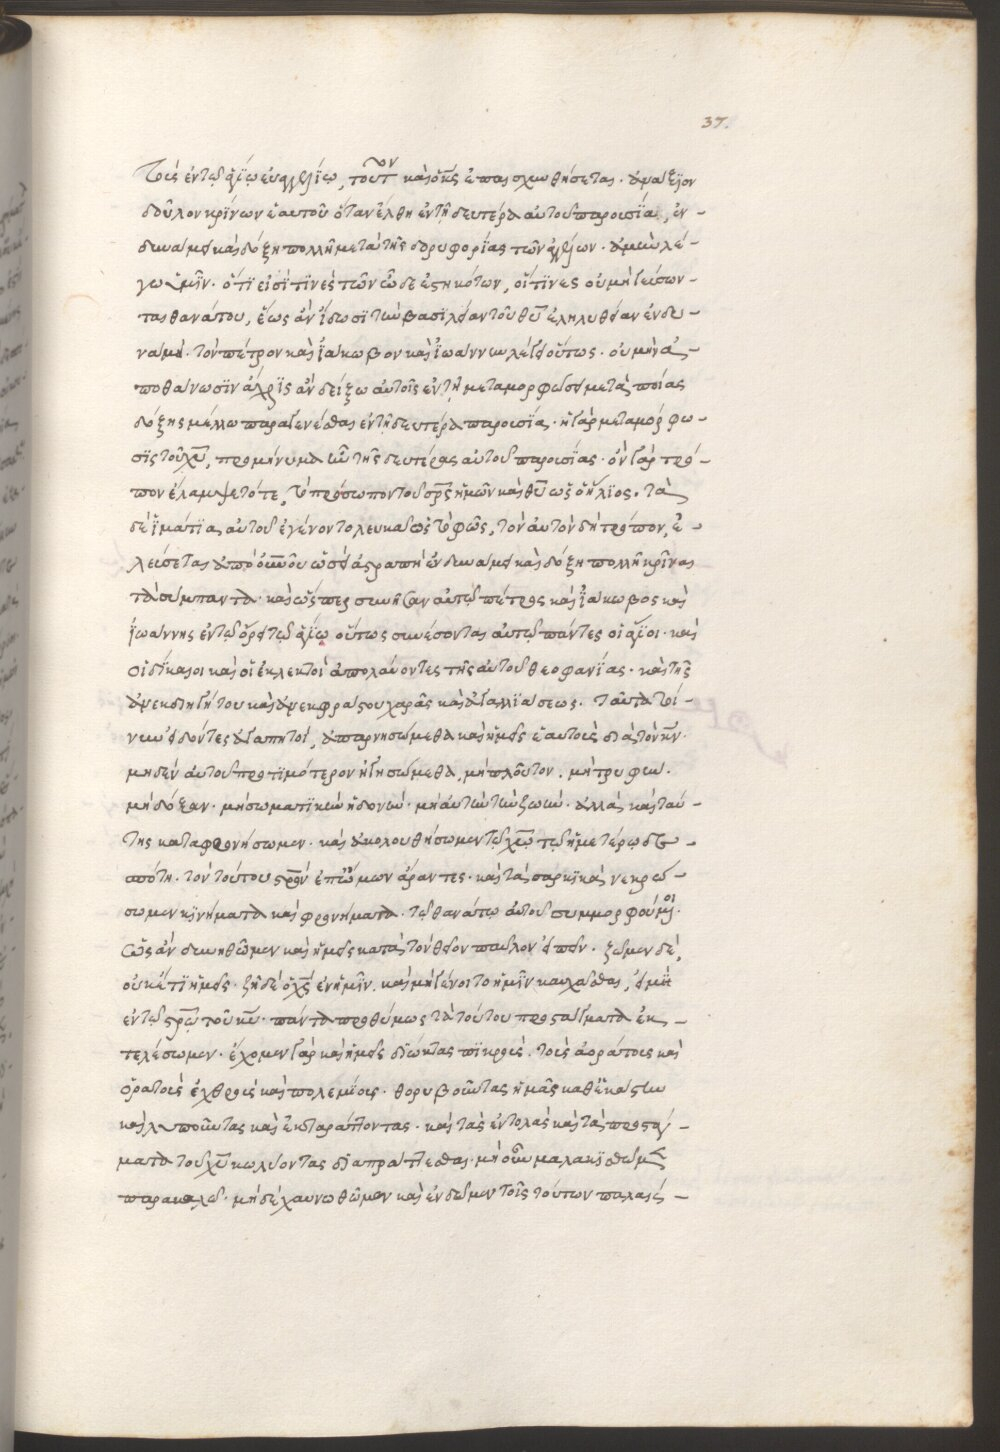 37.
τοῖς ἐν τῷ ἁγίῳ εὐαγγελίῳ, τοῦτον καὶ ὁ κς ἐπαισχυνθήσεται. ἀνάξιον
δοῦλον κρίνων ἑαυτοῦ ὅταν ἔλθη ἐν τῇ δευτέρα αὐτοῦ παρουσία, ἐν -
δυνάμει καὶ δόξη πολλῇ μετὰ τῆς δορυφορίας τῶν ἀγγέλων. ἀμὴν λέ -
γω ὑμῖν. ὅτι εἰσί τινες τῶν ὧδε ἑστηκότων, οἵτινες οὐ μὴ γεύσον -
ται θανάτου, ἕως ἂν ἴδωσι τὴν βασιλείαν τοῦ θυ ἐληλυθείαν ἐν δυ -
νάμει. τὸν πέτρον καὶ ἰάκωβον καὶ ἰωάννην λέγει οὕτως. οὐ μὴν ἀ -
ποθάνωσιν ἄχρις ἂν δείξω αὐτοῖς ἐν τῇ μεταμορφώσει μετὰ ποίας
δόξης μέλλω παραγενέσθαι ἐν τῇ δευτέρα παρουσία. ἡ γὰρ μεταμόρφω -
σις τοῦ χυ, προμήνυμα ἦν τῆς δευτέρας αὐτοῦ παρουσίας. ὃν γὰρ τρό -
πον ἔλαμψε τότε, τὸ πρόσωπον τοῦ σρς ἡμῶν καὶ θυ ὡς ὁ ἥλιος. τὰ
δὲ ἱμάτια αὐτοῦ ἐγένοντο λευκὰ ὡς τὸ φῶς, τὸν αὐτὸν δὴ τρόπον, ἐ -
λεύσεται ἀπὸ οὐνοῦ ὡσεὶ ἀστραπὴ ἐν δυνάμει καὶ δόξη πολλῇ κρῖναι
τὰ σύμπαντα. καὶ ὥσπερ συνῆσαν αὐτῷ πέτρος καὶ ἰάκωβος καὶ
ἰωάννης ἐν τῷ ὄρει τῷ ἁγίῳ οὕτως συνέσονται αὐτῷ πάντες οἱ ἅγιοι. καὶ
οἱ δίκαιοι καὶ οἱ ἐκλεκτοὶ ἀπολαύοντες τῆς αὐτοῦ θεοφανίας. καὶ τῆς
ἀνεκδιηγήτου καὶ ἀνεκφράστου χαρᾶς καὶ ἀγαλλιάσεως. ταῦτα τοί -
νυν εἰδότες ἀγαπητοὶ, ἀπαρνησώμεθα καὶ ἡμεῖς ἑαυτοὺς διὰ τὸν κν.
μηδὲν αὐτοῦ προτιμότερον ἡγησώμεθα, μὴ πλοῦτον. μὴ τρυφὴν.
μὴ δόξαν. μὴ σωματικὴν ἡδονὴν. μὴ αὐτὴν τὴν ζωὴν. ἀλλὰ καὶ ταύ -
της καταφρονήσωμεν. καὶ ἀκολουθήσωμεν τῷ χω τῷ ἡμετέρῳ δε -
σπότη. τὸν τούτου στρον ἐπ' ὤμων ἄραντες. καὶ τὰ σαρκικὰ νεκρώ -
σωμεν κινήματα καὶ φρονήματα. τῷ θανάτῳ αὐτοῦ συμμορφούμενοι.
ὡς ἂν δυνηθῶμεν καὶ ἡμεῖς κατὰ τὸν θεῖον παῦλον εἰπεῖν. ζῶμεν δὲ,
οὐκέτι ἡμεῖς. ζῆ δὲ ὁ χς ἐν ἡμῖν. καὶ μὴ γένοιτο ἡμῖν καυχᾶσθαι, εἰ μὴ
ἐν τῷ στρω τοῦ κυ. πάντα προθύμως τὰ τούτου προστάγματα ἐκ -
τελέσωμεν. ἔχομεν γὰρ καὶ ἡμεῖς διώκτας πικροὺς. τοὺς ἀοράτους καὶ
ὁρατοὺς ἐχθροὺς καὶ πολεμίους. θορυβοῦντας ἡμᾶς καθ' ἑκάστην
καὶ λυποῦντας καὶ ἐκταράττοντας. καὶ τὰς ἐντολὰς καὶ τὰ προστάγ -
ματα τοῦ χυ κωλύοντας διαπράττεσθαι. μὴ οὖν μαλακισθῶμεν
παρακαλῶ. μὴ δὲ χαυνωθῶμεν καὶ ἐνδῶμεν τοῖς τούτων παλαισ -